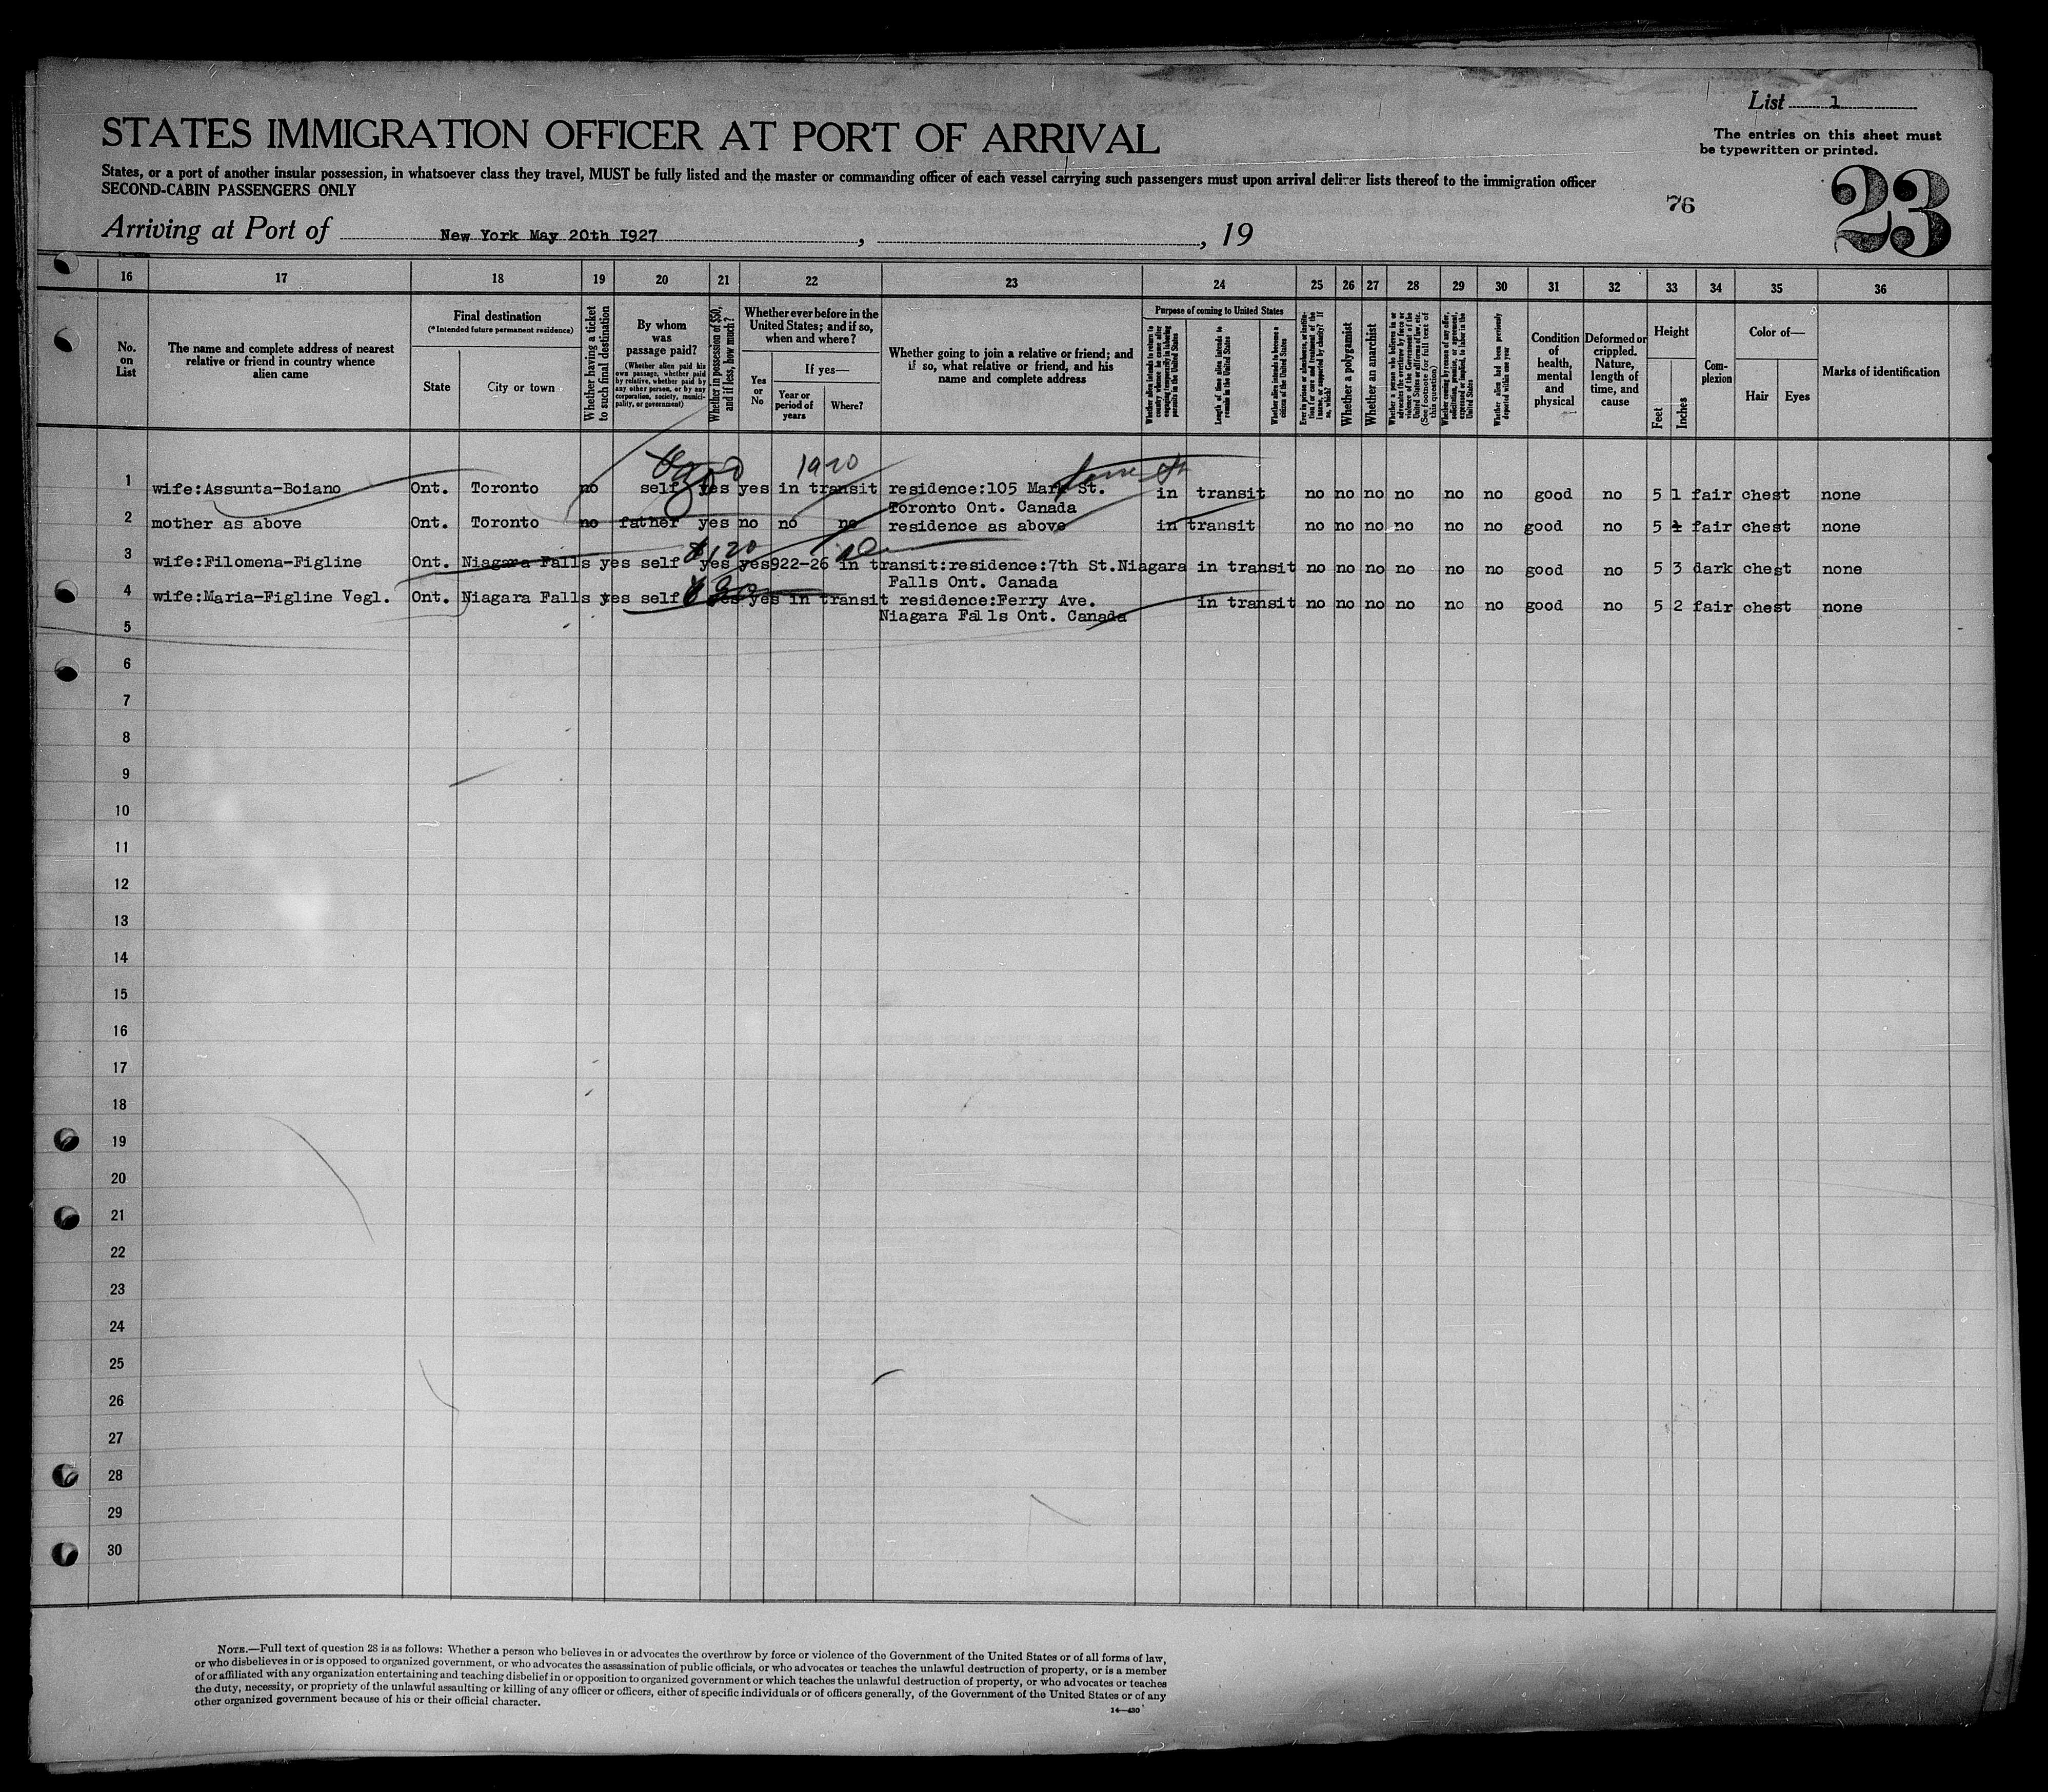 List 1
The entries on this sheet must
be typewritten or printed.
STATES IMMIGRATION OFFICER AT PORT OF ARRIVAL
States, or a port of another insular possession, in whatsoever class they travel, MUST be fully listed and the master or commanding officer of each vessel carrying such passengers must upon arrival deliver lists thereof to the immigration officer
SECOND-CABIN PASSENGERS ONLY
76
23
Arriving at Port of New York May 20th 1927, , 19
16 17 18 19 20 21 22 23 24 25 26 27 28 29 30 31 32 33 34 35 36
No. on List
The name and complete address of nearest
relative or friend in country whence
alien came
Final destination
(*Intended future permanent residence)
State
City or town
Whether having a ticket
to such final destination
By whom
was
passage paid?
(Whether alien paid his
own passage, whether paid
by relative, whether paid by
any other person, or by any
corporation, society, munici-
pality, or government)
Whether in possession of $50,
and if less, how much?
Whether ever before in the
United States; and if so,
when and where?
Yes
or
No
If yes—
Year or
period of
years
Where?
Whether going to join a relative or friend; and
if so, what relative or friend, and his
name and complete address
Purpose of coming to United States
Whether alien intends to return to
country whence he came after
engaging temporarily in laboring
pursuits in the United States
Length of time alien intends to
remain in the United States
Whether alien intends to become a
citizen of the United States
Ever in prison or almshouse, or institu-
tion for care and treatment of the
insane, or supported by charity? If
so, which?
Whether a polygamist
Whether an anarchist
Whether a person who believes in or
advocates the overthrow by force or
violence of the Government of the
United States or all forms of law, etc.
(See footnote for full text of
this question)
Whether coming by reason of any offer,
solicitation, promise, or agreement,
expressed or implied, to labor in the
United States
Whether alien had been previously
deported within one year
Condition
of
health,
mental
and
physical
Deformed or
crippled.
Nature,
length of
time, and
cause
Height
Feet
Inches
Com-
plexion
Color of—
Hair
Eyes
Marks of identification
1920
1 wife:Assunta-Boiano Ont. Toronto no self yes yes in transit residence:105 Mark St. in transit no no no no no no good no 5 1 fair chest none
Toronto Ont. Canada
2 mother as above Ont. Toronto no father yes no no no residence as above in transit no no no no no no good no 5 fair chest none
$120
3 wife:Filomena-Figline Ont. Niagara Falls yes self yes yes922-26 in transit:residence:7th St.Niagara in transit no no no no no no good no 5 3 dark chest none
Falls Ont. Canada
4 wife:Maria-Figline Vegl. Ont. Niagara Falls yes self yes yes in transit residence:Ferry Ave. in transit no no no no no no good no 5 2 fair chest none
Niagara Falls Ont. Canada
5
6
7
8
9
10
11
12
13
14
15
16
17
18
19
20
21
22
23
24
25
26
27
28
29
30
NOTE.—Full text of question 28 is as follows: Whether a person who believes in or advocates the overthrow by force or violence of the Government of the United States or of all forms of law,
or who disbelieves in or is opposed to organized government, or who advocates the assassination of public officials, or who advocates or teaches the unlawful destruction of property, or is a member
of or affiliated with any organization entertaining and teaching disbelief in or opposition to organized government or which teaches the unlawful destruction of property, or who advocates or teaches
the duty, necessity, or propriety of the unlawful assaulting or killing of any officer or officers, either of specific individuals or of officers generally, of the Government of the United States or of any
other organized government because of his or their official character.
14—430